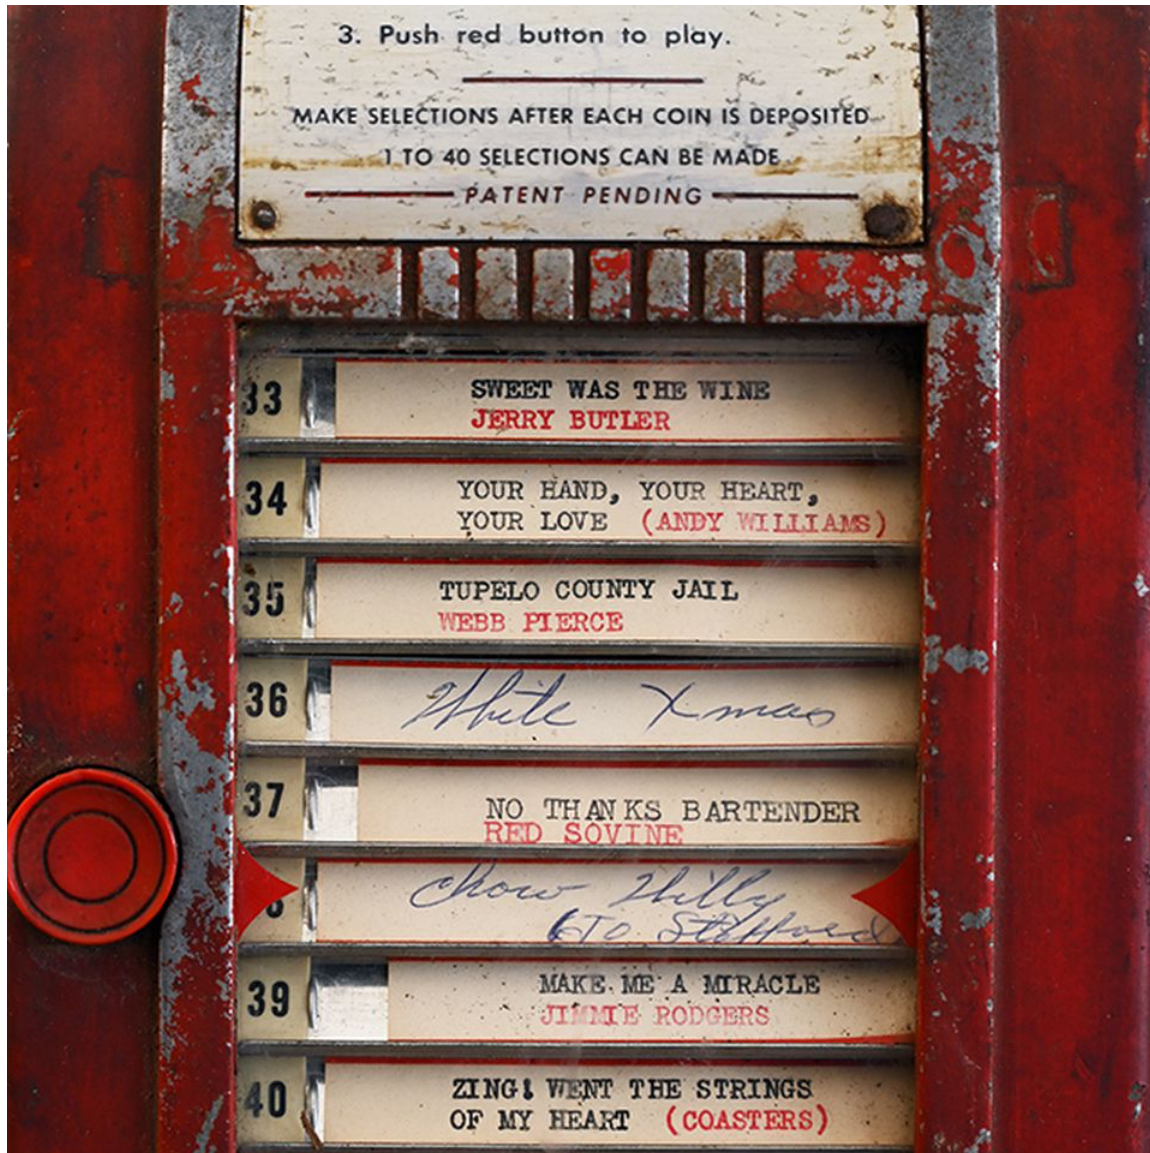 3. Push red button to play.
MAKE SELECTIONS AFTER EACH COIN IS DEPOSITED
1 TO 40 SELECTIONS CAN BE MADE
PATENT PENDING
33 SWEET WAS THE WINE
JERRY BUTLER
34 YOUR HAND, YOUR HEART,
YOUR LOVE (ANDY WILLIAMS)
35 TUPELO COUNTY JAIL
WEBB PIERCE
36 White Xmas
37 NO THANKS BARTENDER
RED SOVINE
Chow Willy
39 MAKE ME A MIRACLE
JIMMIE RODGERS
40 ZING! WENT THE STRINGS
OF MY HEART (COASTERS)